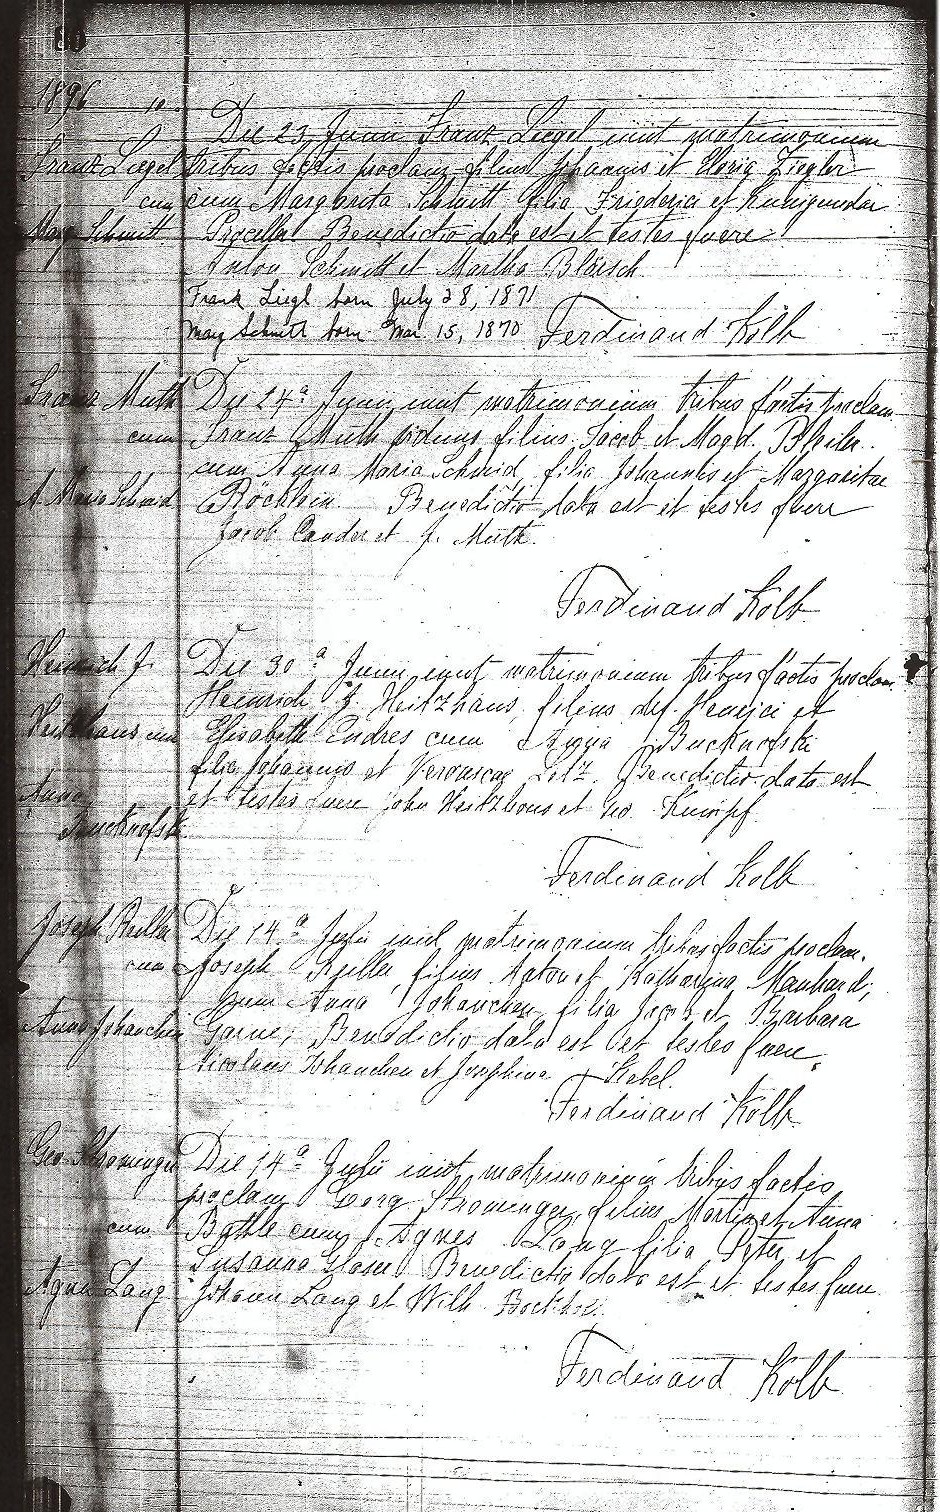 1896
Franz Liegel
cum
Mary Schmitt
Die 23 Junii Franz Liegel iniit matrimonium
tribus factis proclam filius Johannis et Maria Ziegler
cum Margarita Schmitt filia Friderici et
Benedictio data est et testes fuere
Anton Schmitt et Martha Blöisch
Frank Liegl born July 28, 1871
Mary Schmitt born Mar. 15, 1870 Ferdinand Kolb
Franz Muth
cum
A. Maria Schmid
Die 24a Junii iniit matrimonium tribus factis proclam
Franz Muth filius Jacob et Magd.
cum Anna Maria Schmid, filia Johannes et Margaritae
Benedictio data est et testes fuere
Jacob et J. Muth.
Ferdinand Kolb
Heinrich J.
Heitzhaus cum
Anna
Die 30a Junii iniit matrimonium tribus factis proclam.
Heinrich J. Heitzhaus, filius def. et
Elisabeth Endres cum Anna Bucknofski
filia Johannis et Veronicae Letz. Benedictio data est
et testes fuere John Heitzhaus et Geo.
Ferdinand Kolb
Joseph
cum
Anna Johanchen
Die 14a Julii iniit matrimonium tribus factis proclam.
Joseph filius Anton et Katharina
cum Anna Johanchen, filia Jacob et Barbara
Benedictio data est et testes fuere
Nicolaus Johanchen et Josephine
Ferdinand Kolb
Geo. Strominger
cum
Agnes Lang
Die 14a Julii iniit matrimonium tribus factis
proclam Georg Strominger, filius Martin et Anna
cum Agnes Lang filia Peter et
Susanna Benedictio data est et testes fuere
Johann Lang et Wilh.
Ferdinand Kolb